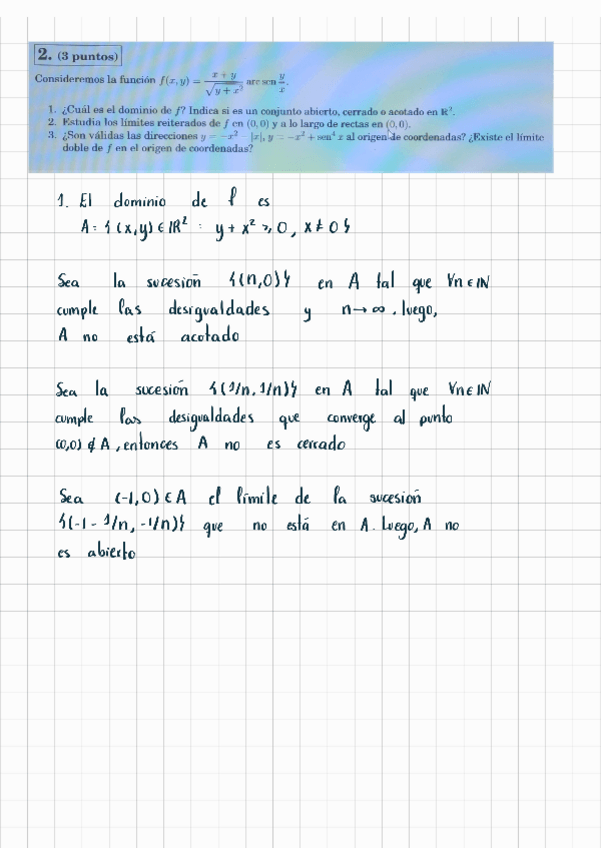 2. (3 puntos)
Consideremos la función f(x, y) = (x + y)/√(y + x²) arc sen y/x.
1. ¿Cuál es el dominio de f? Indica si es un conjunto abierto, cerrado o acotado en ℝ².
2. Estudia los límites reiterados de f en (0, 0) y a lo largo de rectas en (0, 0).
3. ¿Son válidas las direcciones y = −x² − |x|, y = −x² + sen⁴ x al origen de coordenadas? ¿Existe el límite
doble de f en el origen de coordenadas?
1. El dominio de f es
A = {(x,y) ∈ IR² : y + x² ⩾ 0, x ≠ 0}
Sea la sucesión {(n,0)} en A tal que ∀n ∈ IN
cumple las desigualdades y n → ∞. luego,
A no está acotado
Sea la sucesión {(1/n, 1/n)} en A tal que ∀n ∈ IN
cumple las desigualdades que converge al punto
(0,0) ∉ A, entonces A no es cerrado
Sea (-1,0) ∈ A el límite de la sucesión
{(-1 - 1/n, -1/n)} que no está en A. Luego, A no
es abierto